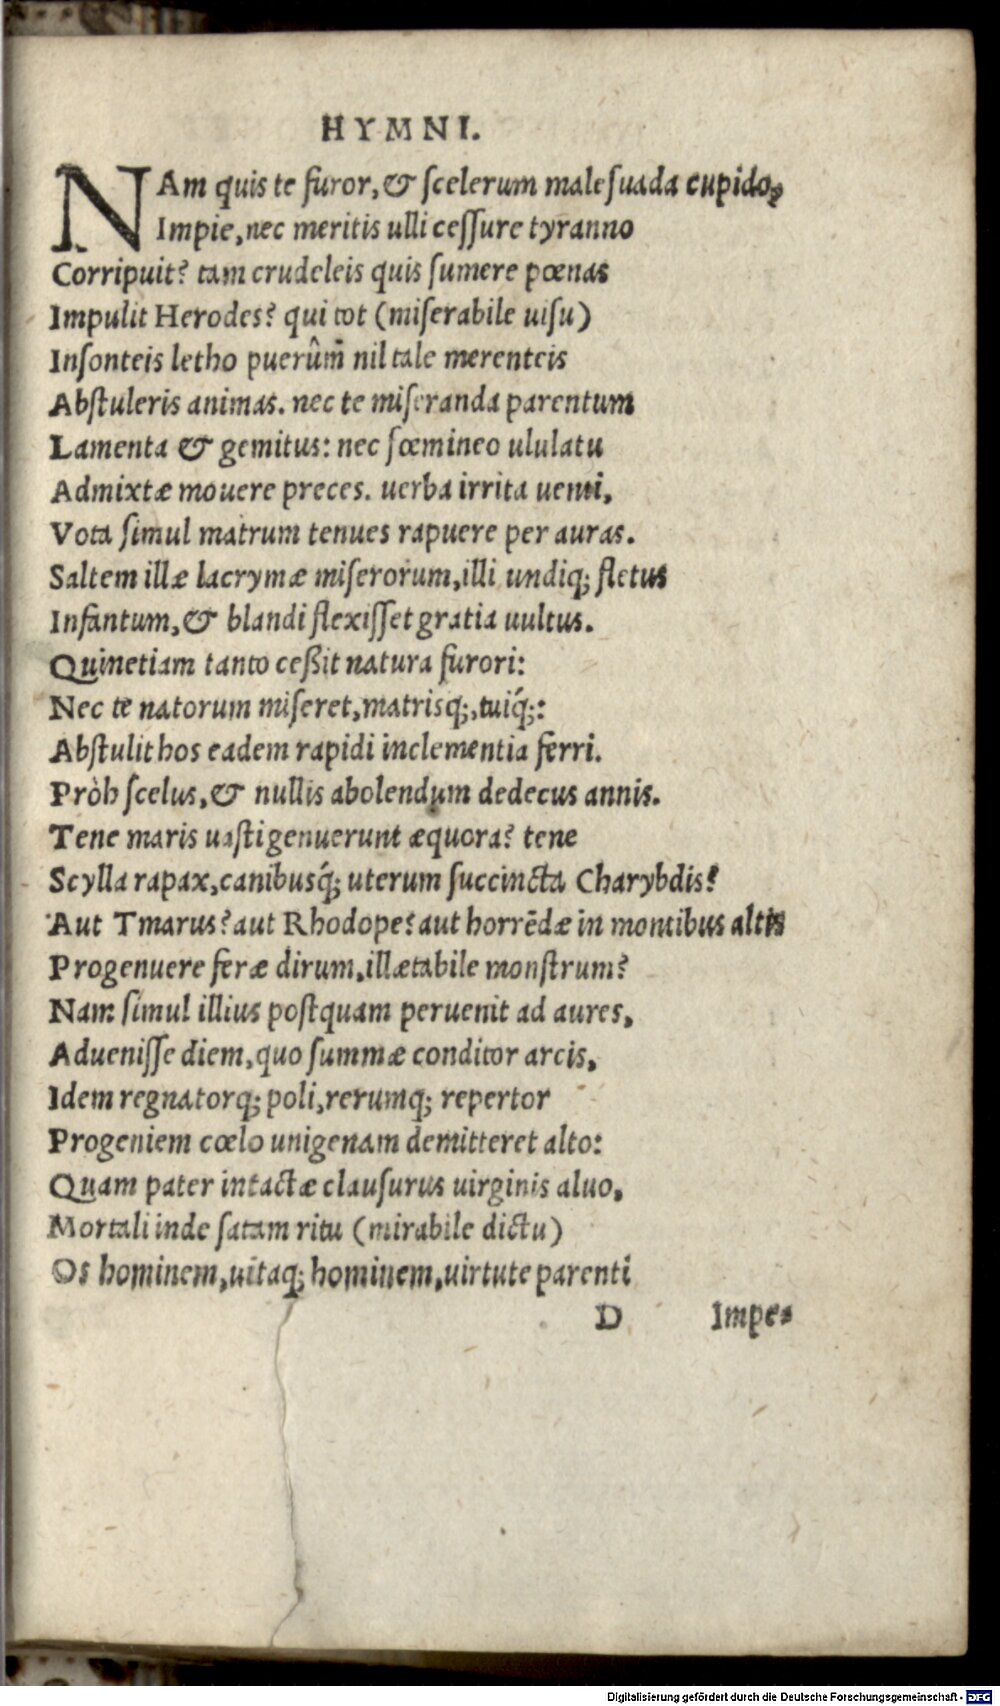 HYMNI.
NAm quis te furor, & scelerum malesuada cupido,
Impie, nec meritis ulli cessure tyranno
Corripuit? tam crudeleis quis sumere pœnas
Impulit Herodes? qui tot (miserabile uisu)
Insonteis letho puerûm nil tale merenteis
Abstuleris animas. nec te miseranda parentum
Lamenta & gemitus: nec fœmineo ululatu
Admixtæ mouere preces. uerba irrita uenti,
Vota simul matrum tenues rapuere per auras.
Saltem illæ lacrymæ miserorum, illi undiq; fletus
Infantum, & blandi flexisset gratia uultus.
Quinetiam tanto ceßit natura furori:
Nec te natorum miseret, matrisq;, tuiq́;:
Abstulit hos eadem rapidi inclementia ferri.
Pròh scelus, & nullis abolendum dedecus annis.
Tene maris uasti genuerunt æquora? tene
Scylla rapax, canibusq́; uterum succincta Charybdis?
Aut Tmarus? aut Rhodope? aut horrẽdæ in montibus altis
Progenuere feræ dirum, illætabile monstrum?
Nam simul illius postquam peruenit ad aures,
Aduenisse diem, quo summæ conditor arcis,
Idem regnatorq; poli, rerumq; repertor
Progeniem cœlo unigenam demitteret alto:
Quam pater intactæ clausurus uirginis aluo,
Mortali inde satam ritu (mirabile dictu)
Os hominem, uitaq; hominem, uirtute parenti
D Impe-
Digitalisierung gefördert durch die Deutsche Forschungsgemeinschaft - DFG